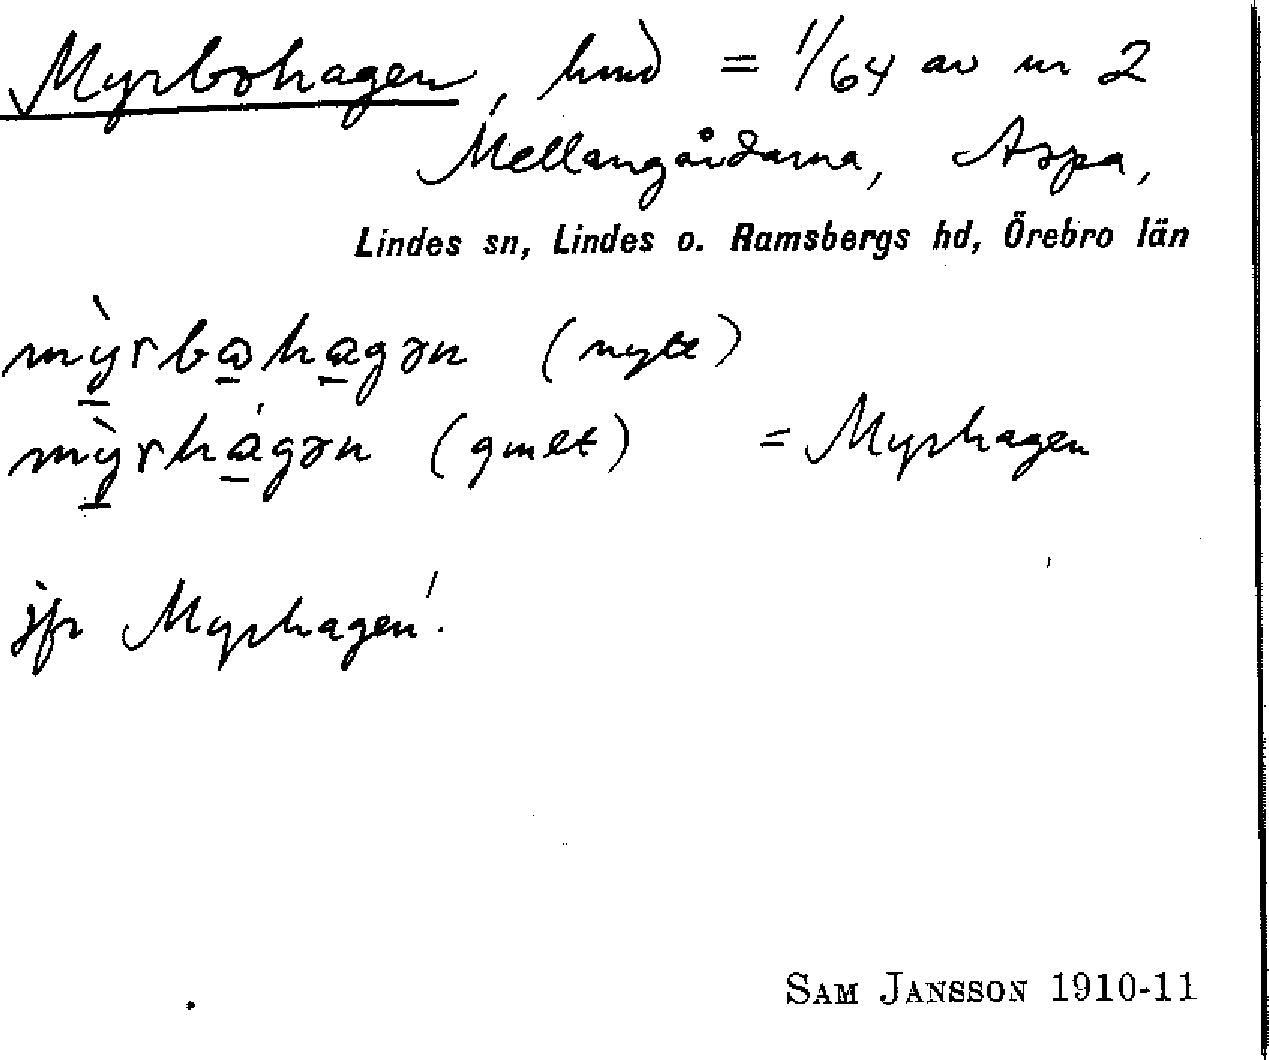 Myrbohagen, hmd = 1/64 av nr 2
Mellangårdarna, Aspa,
Lindes sn, Lindes o. Ramsbergs hd, Örebro län
mỳrbahagən (nytt)
mỳrhágən (gmlt) = Myrhagen
jfr Myrhagen!
SAM JANSSON 1910-11